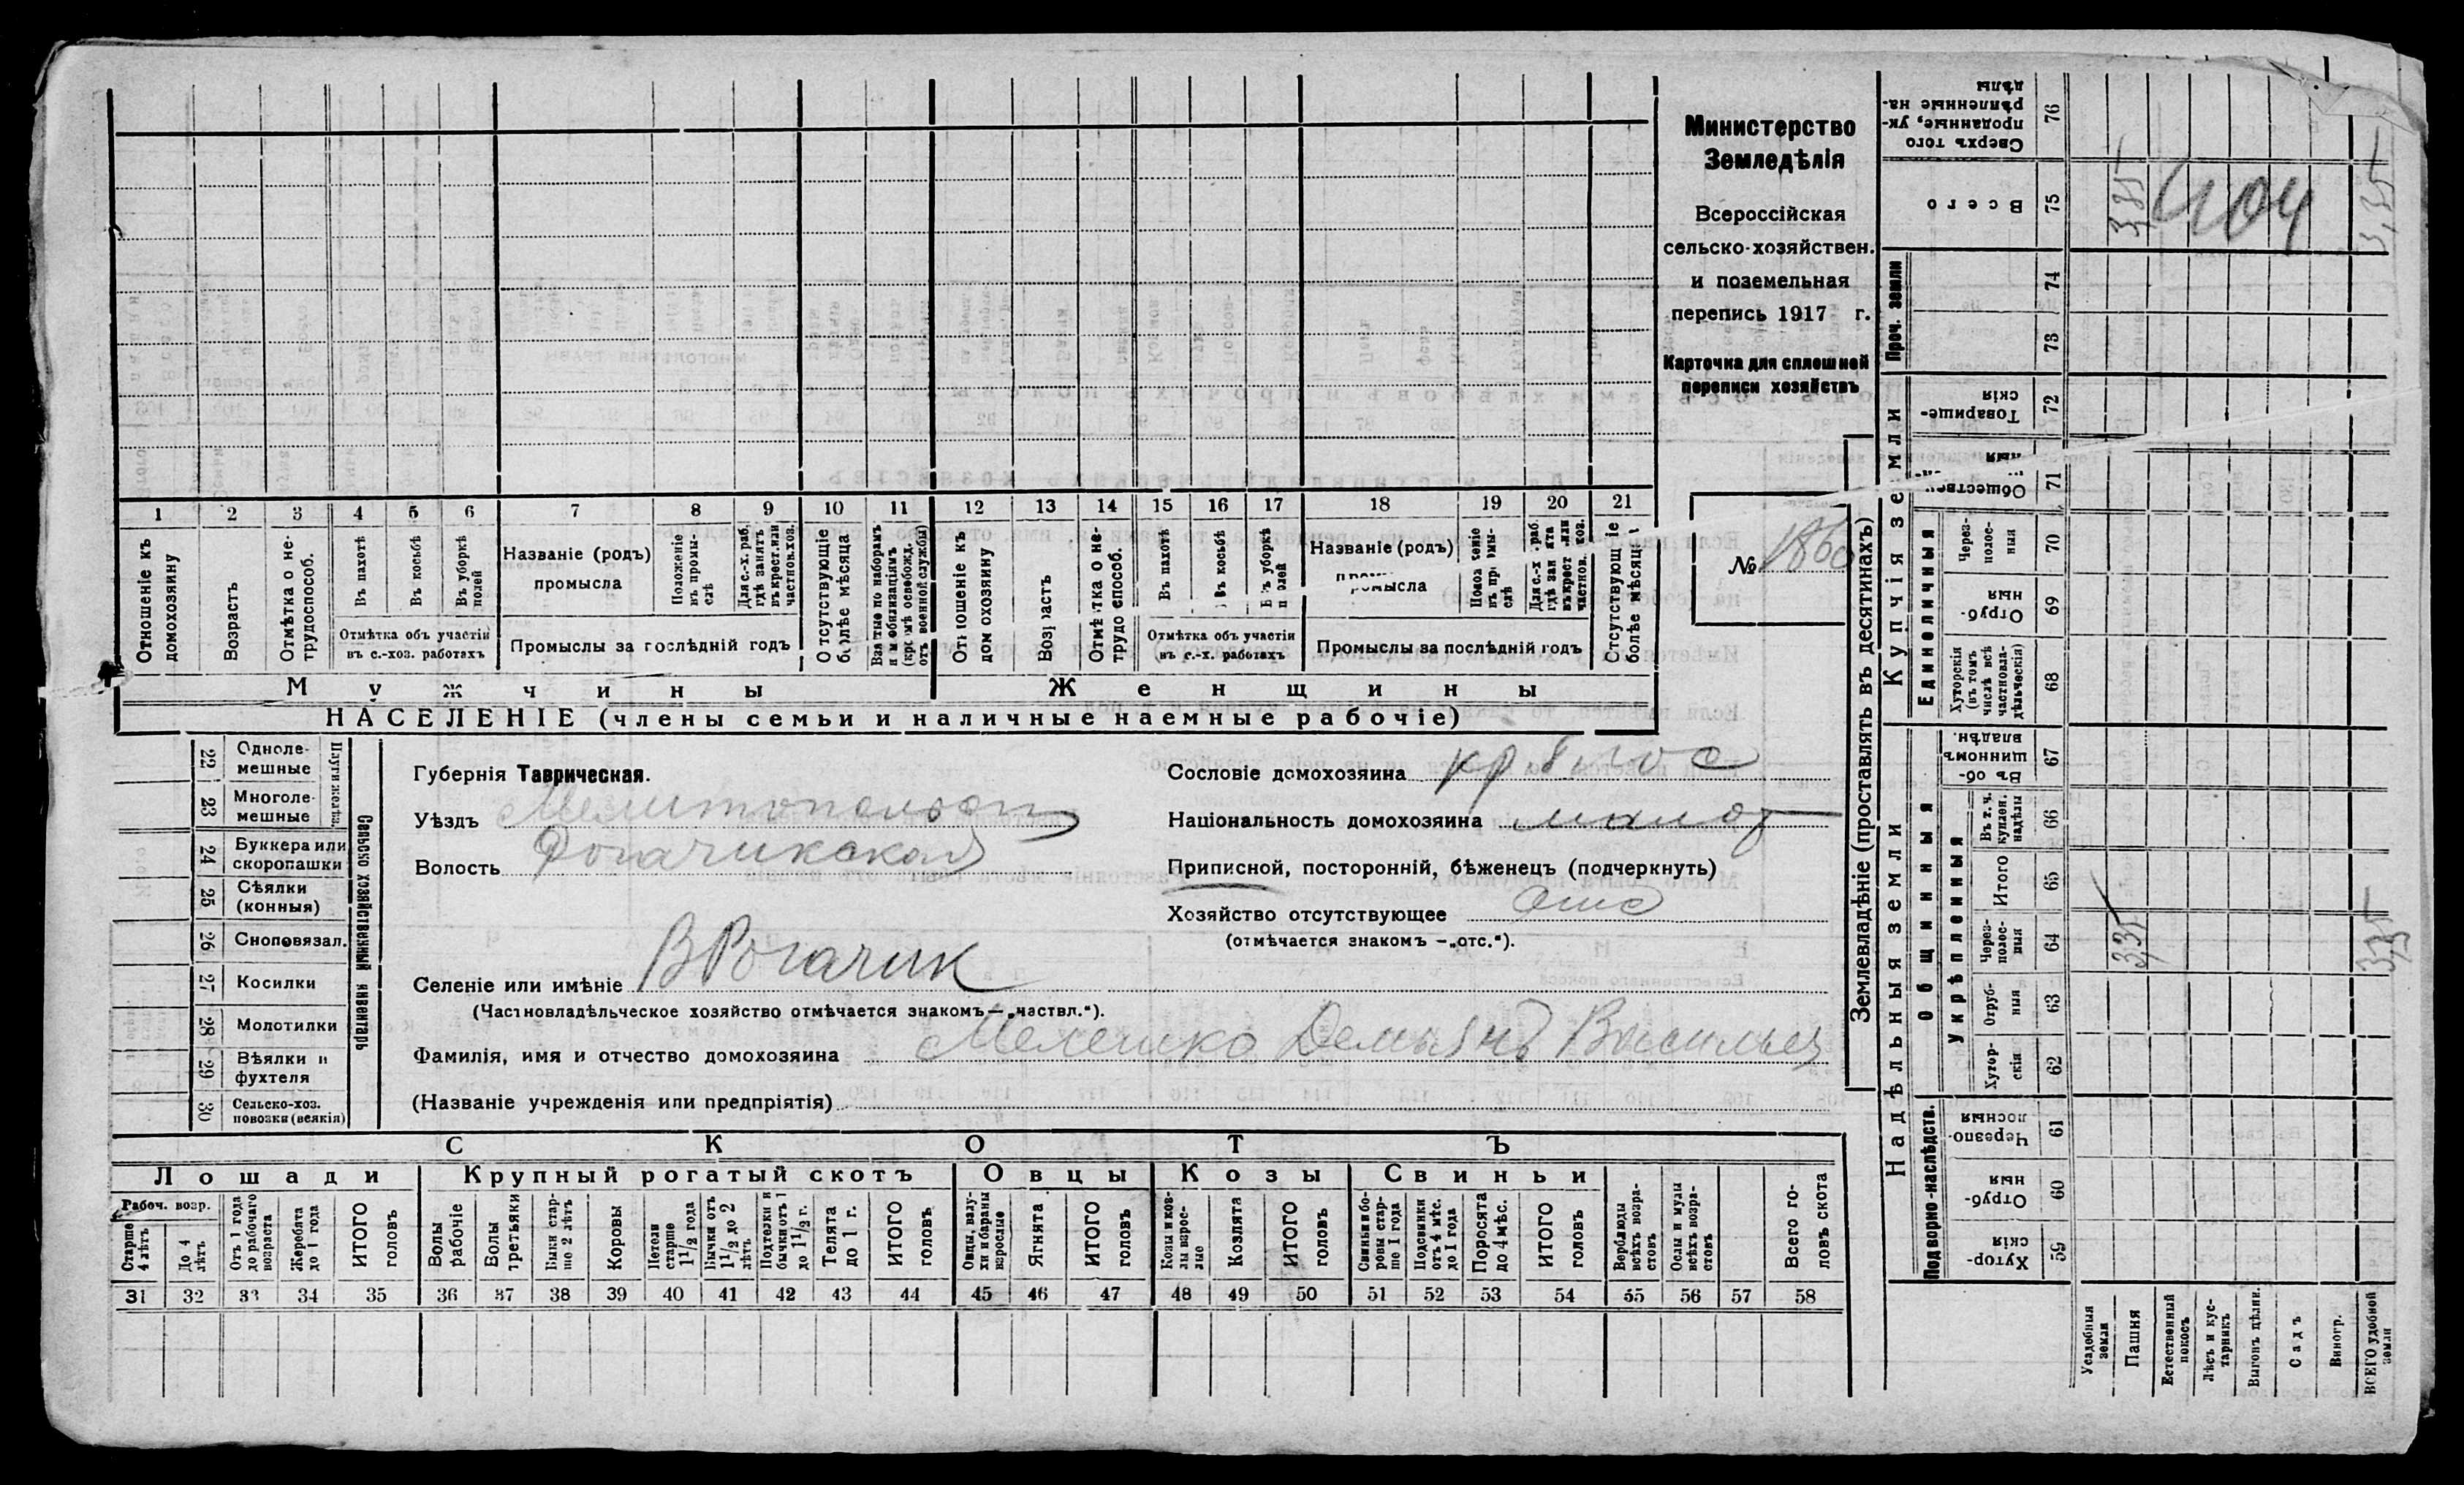 Министерство
Земледѣлія
Всероссійская
сельско-хозяйствен.
и поземельная
перепись 1917 г.
Карточка для сплошной
переписи хозяйствъ
№ 1860
1 2 3 4 5 6 7 8 9 10 11 12 13 14 15 16 17 18 19 20 21
Отношеніе къ домохозяину
Возрастъ
Отмѣтка о не-трудоспособ.
Въ пахотѣ
Въ косьбѣ
Въ уборкѣ полей
Отмѣтка объ участіи
въ с.-хоз. работахъ
Названіе (родъ)
промысла
Положеніе въ промы-слѣ
Для с.-х. раб. гдѣ занятъ въ крест. или частнов. хоз.
Промыслы за послѣдній годъ
Отсутствующіе болѣе мѣсяца
Взятые по наборамъ и мобилизаціямъ (кромѣ освобожд. отъ военной службы)
Отношеніе къ домохозяину
Возрастъ
Отмѣтка о не-трудоспособ.
Въ пахотѣ
Въ косьбѣ
Въ уборкѣ полей
Отмѣтка объ участіи
въ с.-х. работахъ
Названіе (родъ)
промысла
Положеніе въ промы-слѣ
Для с.-х. раб. гдѣ занята въ крест. или частнов. хоз.
Промыслы за послѣдній годъ
Отсутствующіе болѣе мѣсяца
Мужчины
Женщины
НАСЕЛЕНІЕ (члены семьи и наличные наемные рабочіе)
22 Одноле-мешные
23 Многоле-мешные
24 Буккера или скоропашки
25 Сѣялки (конныя)
26 Сноповязал.
27 Косилки
28 Молотилки
29 Вѣялки и фухтеля
30 Сельско-хоз. повозки (всякія)
Сельско хозяйственный инвентарь
Губернія Таврическая.
Уѣздъ Мелитопольск
Волость Рогачикская
Селеніе или имѣніе В Рогачик
(Частновладѣльческое хозяйство отмѣчается знакомъ — „частвл.“).
Фамилія, имя и отчество домохозяина Мелешко Демьянъ Васильев
(Названіе учрежденія или предпріятія)
Сословіе домохозяина
Національность домохозяина малор
Приписной, посторонній, бѣженецъ (подчеркнуть)
Хозяйство отсутствующее отс
(отмѣчается знакомъ — „отс.“).
СКОТЪ
Лошади
Крупный рогатый скотъ
Овцы
Козы
Свиньи
Рабоч. возр.
Старше 4 лѣтъ
До 4 лѣтъ
Отъ 1 года до рабочаго возраста
Жеребята до 1 года
ИТОГО головъ
Волы рабочіе
Волы третьяки
Быки стар-ше 2 лѣтъ
Коровы
Нетели старше 1 1/2 года
Бычки отъ 1 1/2 до 2 лѣтъ
Подтелки и бычки отъ 1 до 1 1/2 г.
Телята до 1 г.
ИТОГО головъ
Овцы, валу-хи и бараны взрослые
Ягнята
ИТОГО головъ
Козы и коз-лы взрос-лые
Козлята
ИТОГО головъ
Свиньи и бо-ровы стар-ше 1 года
Подсвинки отъ 4 мѣс. до 1 года
Поросята до 4 мѣс.
ИТОГО головъ
Верблюды всѣхъ возра-стовъ
Ослы и мулы всѣхъ возра-стовъ
Всего го-ловъ скота
31 32 33 34 35 36 37 38 39 40 41 42 43 44 45 46 47 48 49 50 51 52 53 54 55 56 57 58
Землевладѣніе (проставлять въ десятинахъ)
Надѣльныя земли
Купчія земли
Проч. земли
Подворно-наслѣдств.
Общинныя
Укрѣпленныя
Единоличныя
59 Хутор-скія
60 Отруб-ныя
61 Черезпо-лосныя
62 Хутор-скія
63 Отруб-ныя
64 Через-полос-ныя
65 Итого
66 Въ т. ч. куплен. надѣлы
67 Въ об-щинномъ владѣн.
68 Хуторскія (въ томъ числѣ всѣ частновла-дѣльческія)
69 Отруб-ныя
70 Через-полос-ныя
71
72 Товарище-скія
73
74
75 Всего
76 Сверхъ того проданные, ук-рѣпленные на-дѣлы
404
Усадебныя земли
Пашня
Естественный покосъ
Лѣсъ и кус-тарникъ
Выгонъ цѣлин.
Садъ
Виногр.
ВСЕГО удобной земли